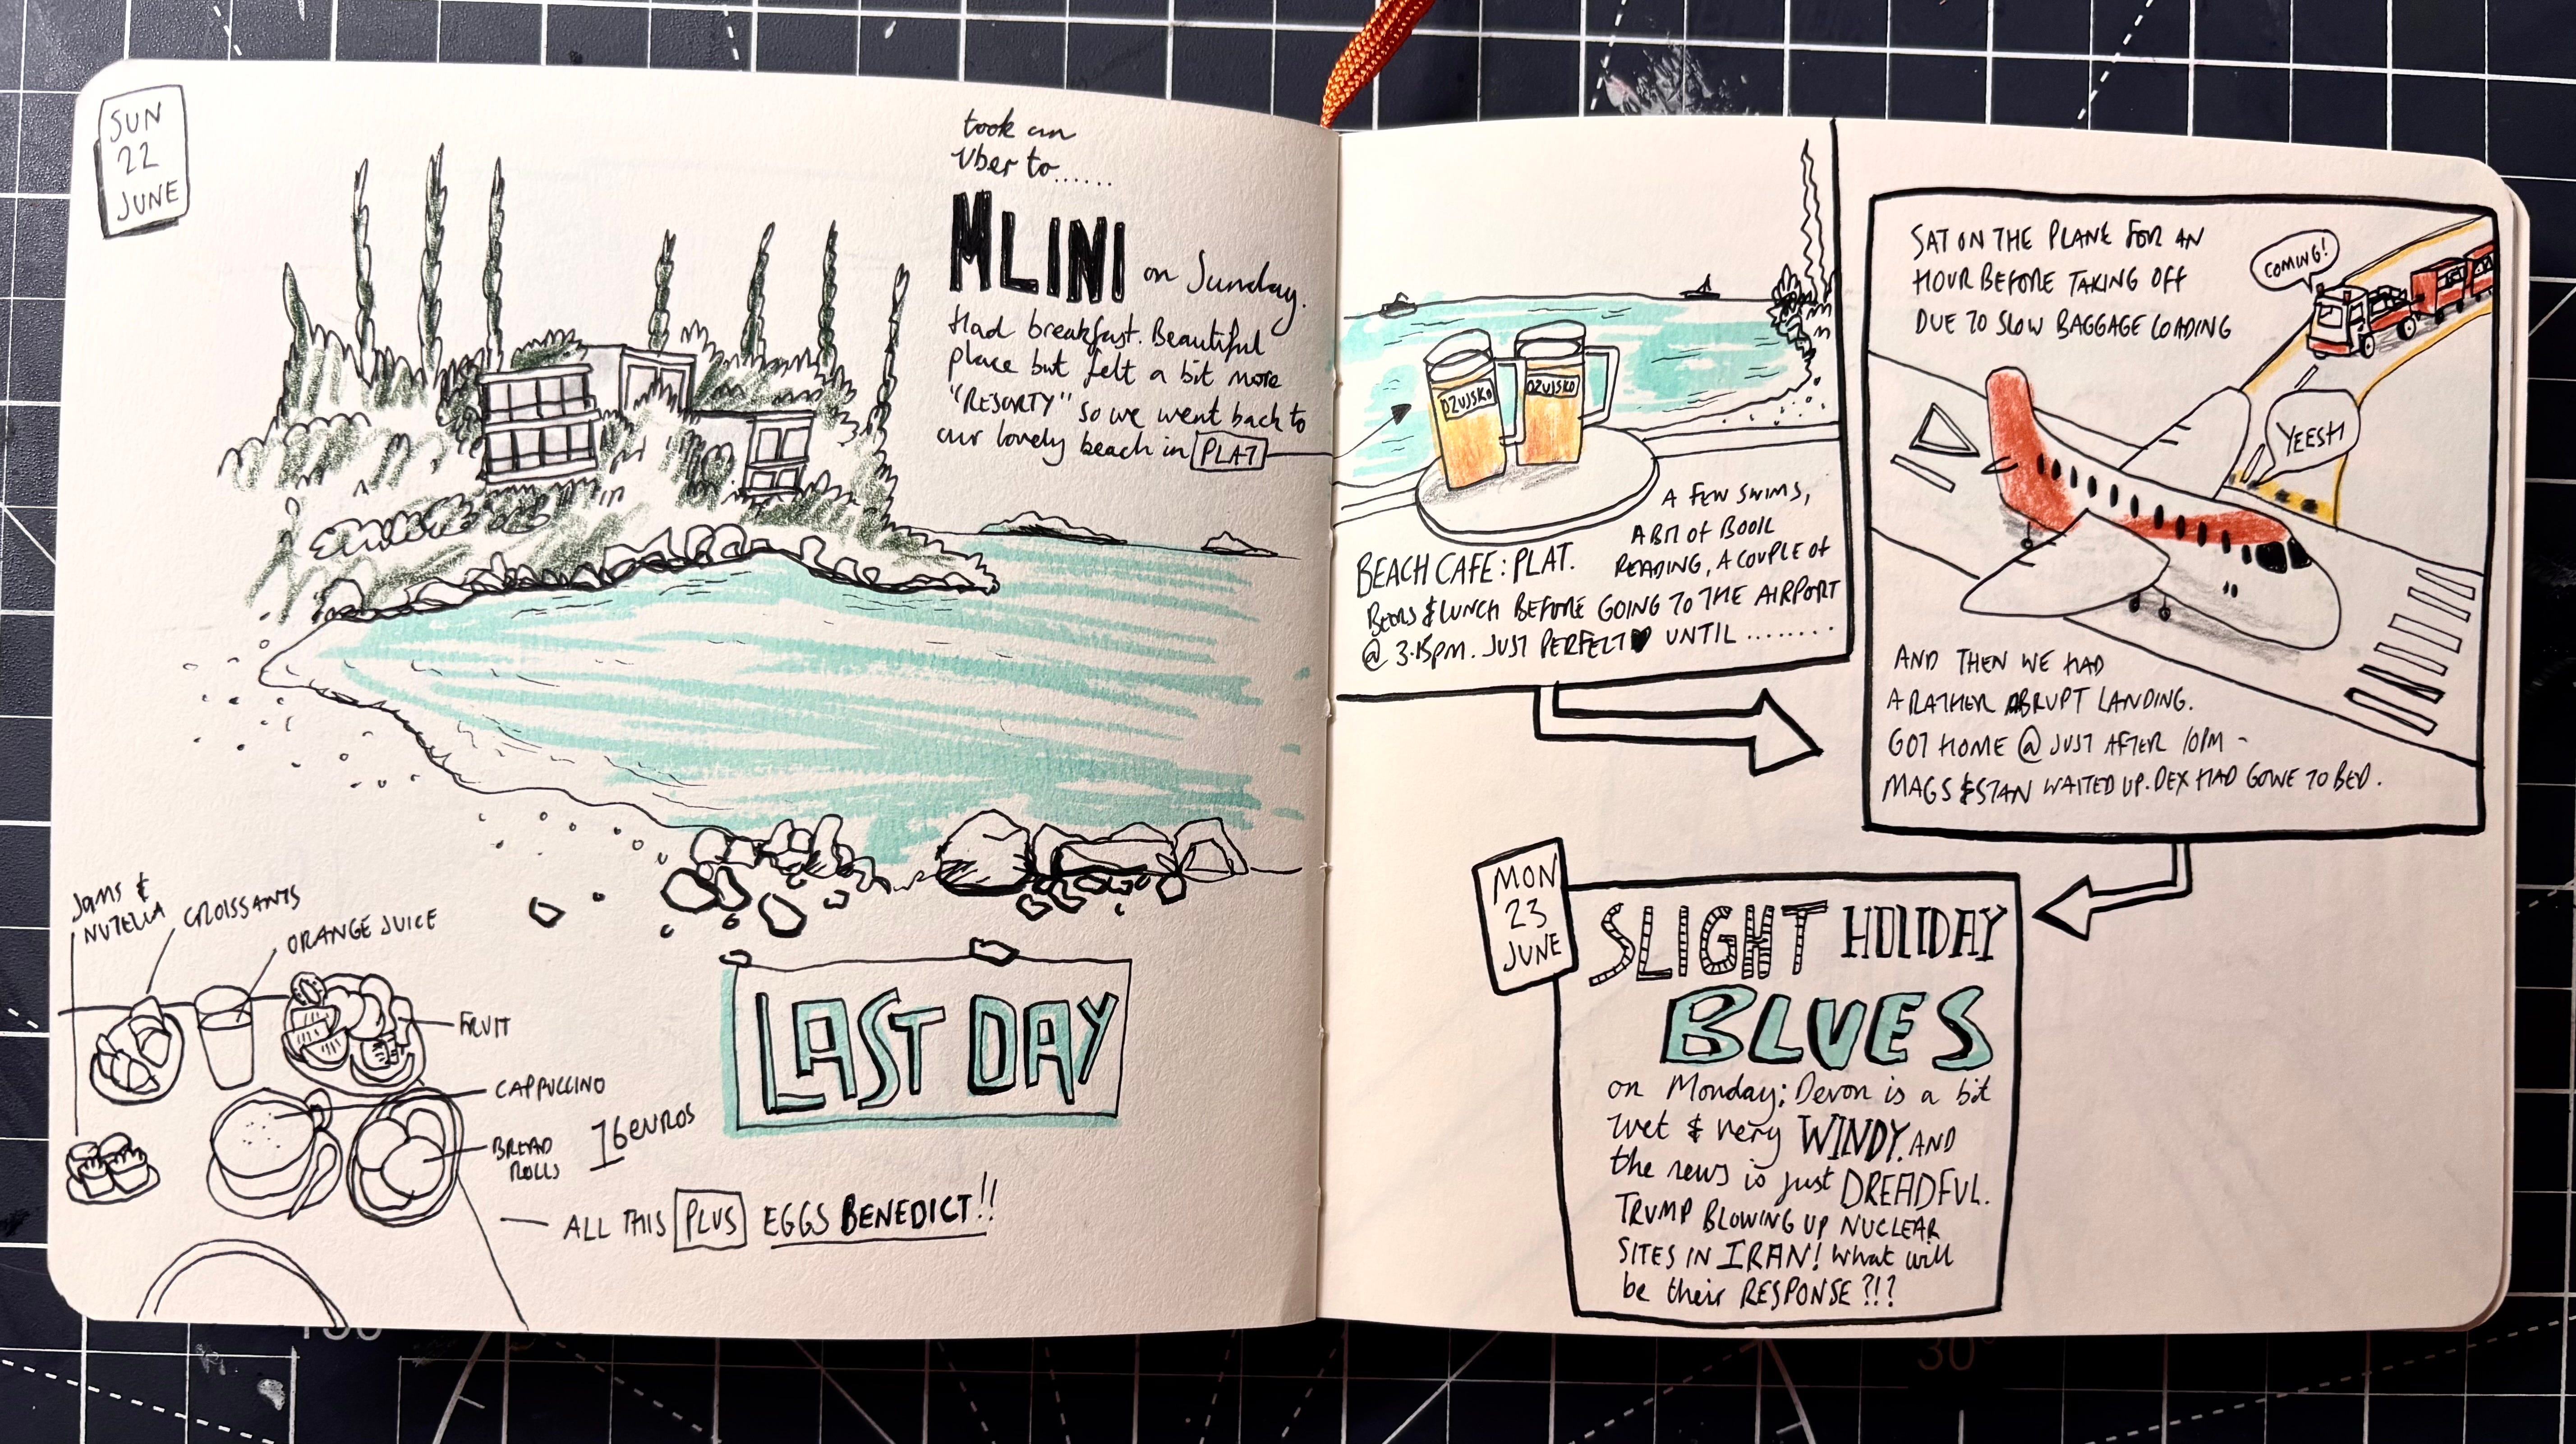 SUN
22
JUNE
took an
Uber to......
MLINI on Sunday.
Had breakfast. Beautiful
place but felt a bit more
"RESORTY" so we went back to
our lovely beach in PLAT
JAMS &
NUTELLA
CROISSANTS
ORANGE JUICE
FRUIT
CAPPUCCINO
BREAD
ROLLS
76 EUROS
ALL THIS PLUS EGGS BENEDICT!!
LAST DAY
OZUJSKO
OZUJSKO
A FEW SWIMS,
A BIT OF BOOK
BEACH CAFE: PLAT. READING, A COUPLE OF
BEERS & LUNCH BEFORE GOING TO THE AIRPORT
@ 3.15PM. JUST PERFECT ♥ UNTIL ........
SAT ON THE PLANE FOR AN
HOUR BEFORE TAKING OFF
DUE TO SLOW BAGGAGE LOADING
COMING!
YEESH
AND THEN WE HAD
A RATHER ABRUPT LANDING.
GOT HOME @ JUST AFTER 10PM -
MAGS & STAN WAITED UP. DEX HAD GONE TO BED.
MON
23
JUNE
SLIGHT HOLIDAY
BLUES
on Monday; Devon is a bit
wet & very WINDY. AND
the news is just DREADFUL.
TRUMP BLOWING UP NUCLEAR
SITES IN IRAN! What will
be their RESPONSE?!?
30